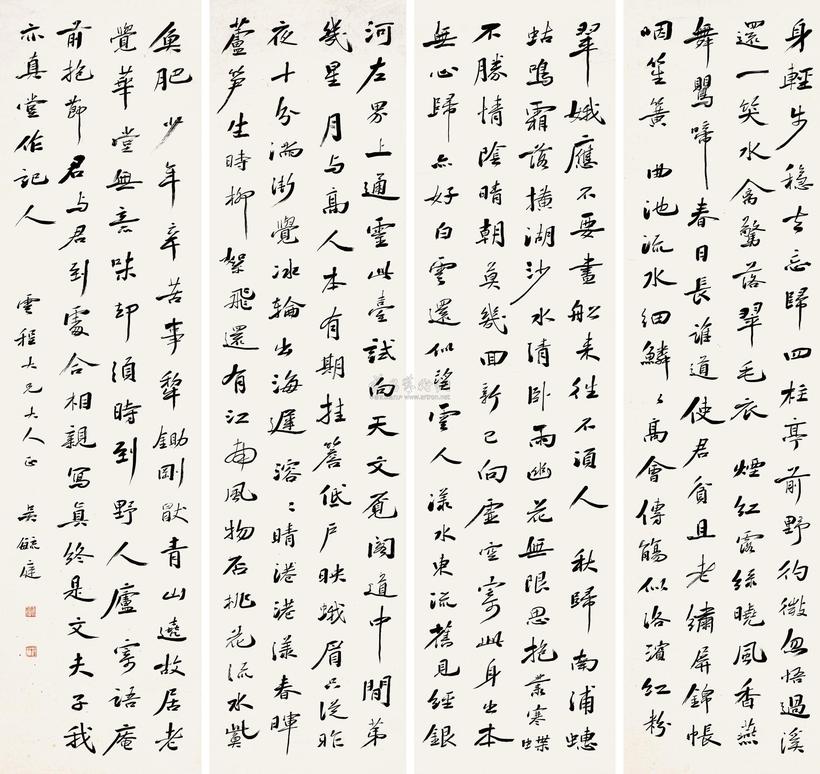 身輕步穩去忘歸四柱亭前野彴微忽悟過溪
還一笑水禽驚落翠毛衣 煙紅露綠曉風香燕
舞鶯啼春日長誰道使君貧且老繡屏錦帳
咽笙簧 曲池流水細鱗鱗高會傳觴似洛濱紅粉
翠娥應不要畫船來往不須人 秋歸南浦蟪
蛄鳴霜落橫湖沙水清臥雨幽花無限思抱叢寒蝶
不勝情陰晴朝莫幾回新已向虛空寄此身出本
無心歸亦好白雲還似望雲人漾水東流舊見經銀
河左界上通靈此臺試向天文覓閣道中間第
幾星月与高人本有期挂簷低戶映蛾眉只從昨
夜十分滿漸覺冰輪出海遲溶溶晴港漾春暉
蘆筍生時柳絮飛還有江南風物否桃花流水鮆
魚肥少年辛苦事犂鋤剛厭青山遶故居老
覺華堂無意味却須時到野人廬寄語庵
前抱節君与君到處合相親寫真終是文夫子我
亦真堂作記人
雲程大兄大人正 吳毓庭